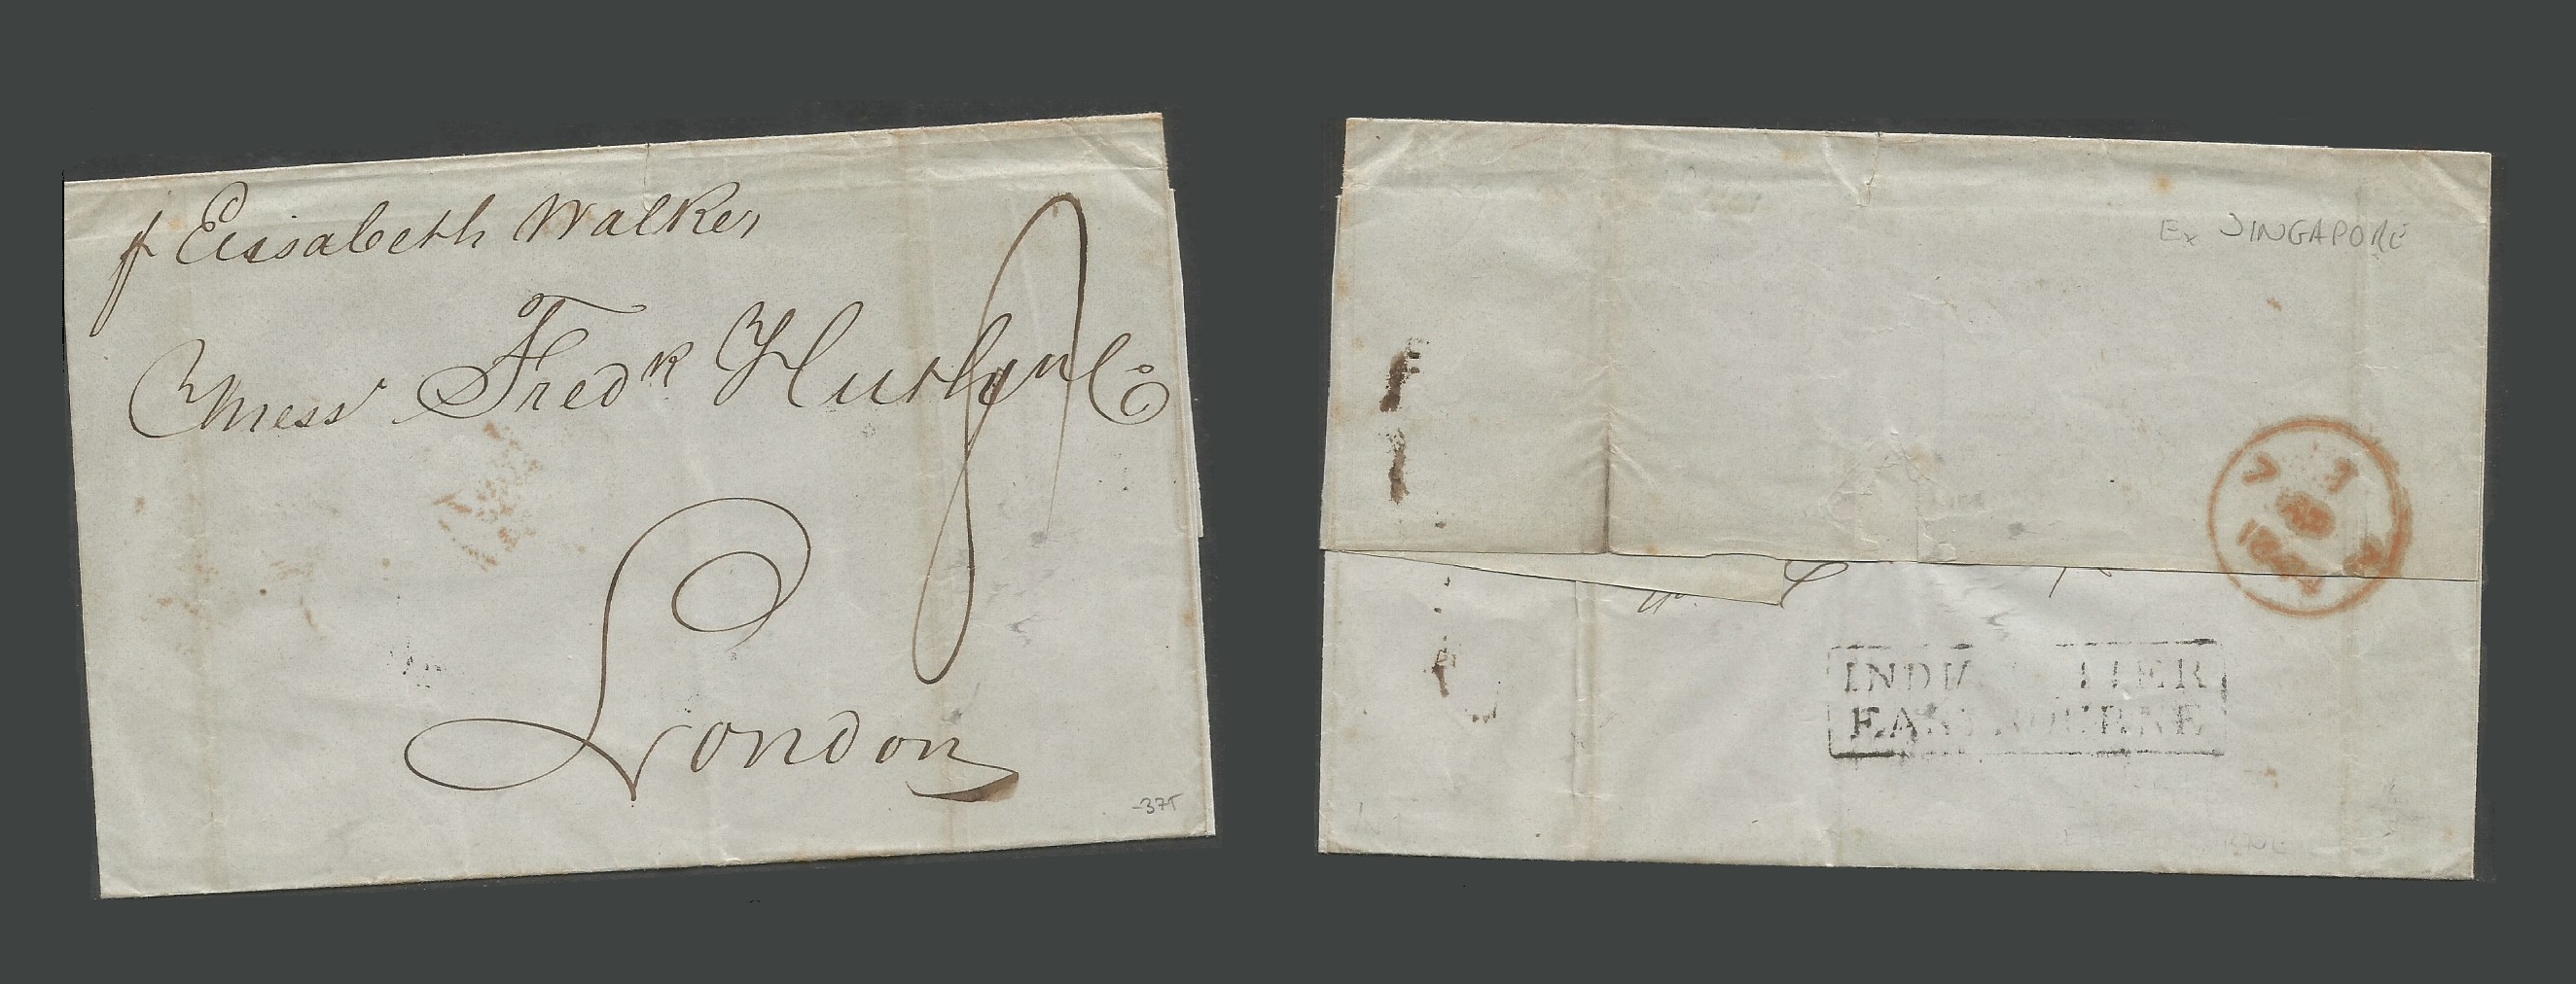 p Elisabeth Walker
Mess.rs Fred.k Huth and Co
London
-375
Ex SINGAPORE
INDIA TTER
EASTBOURNE